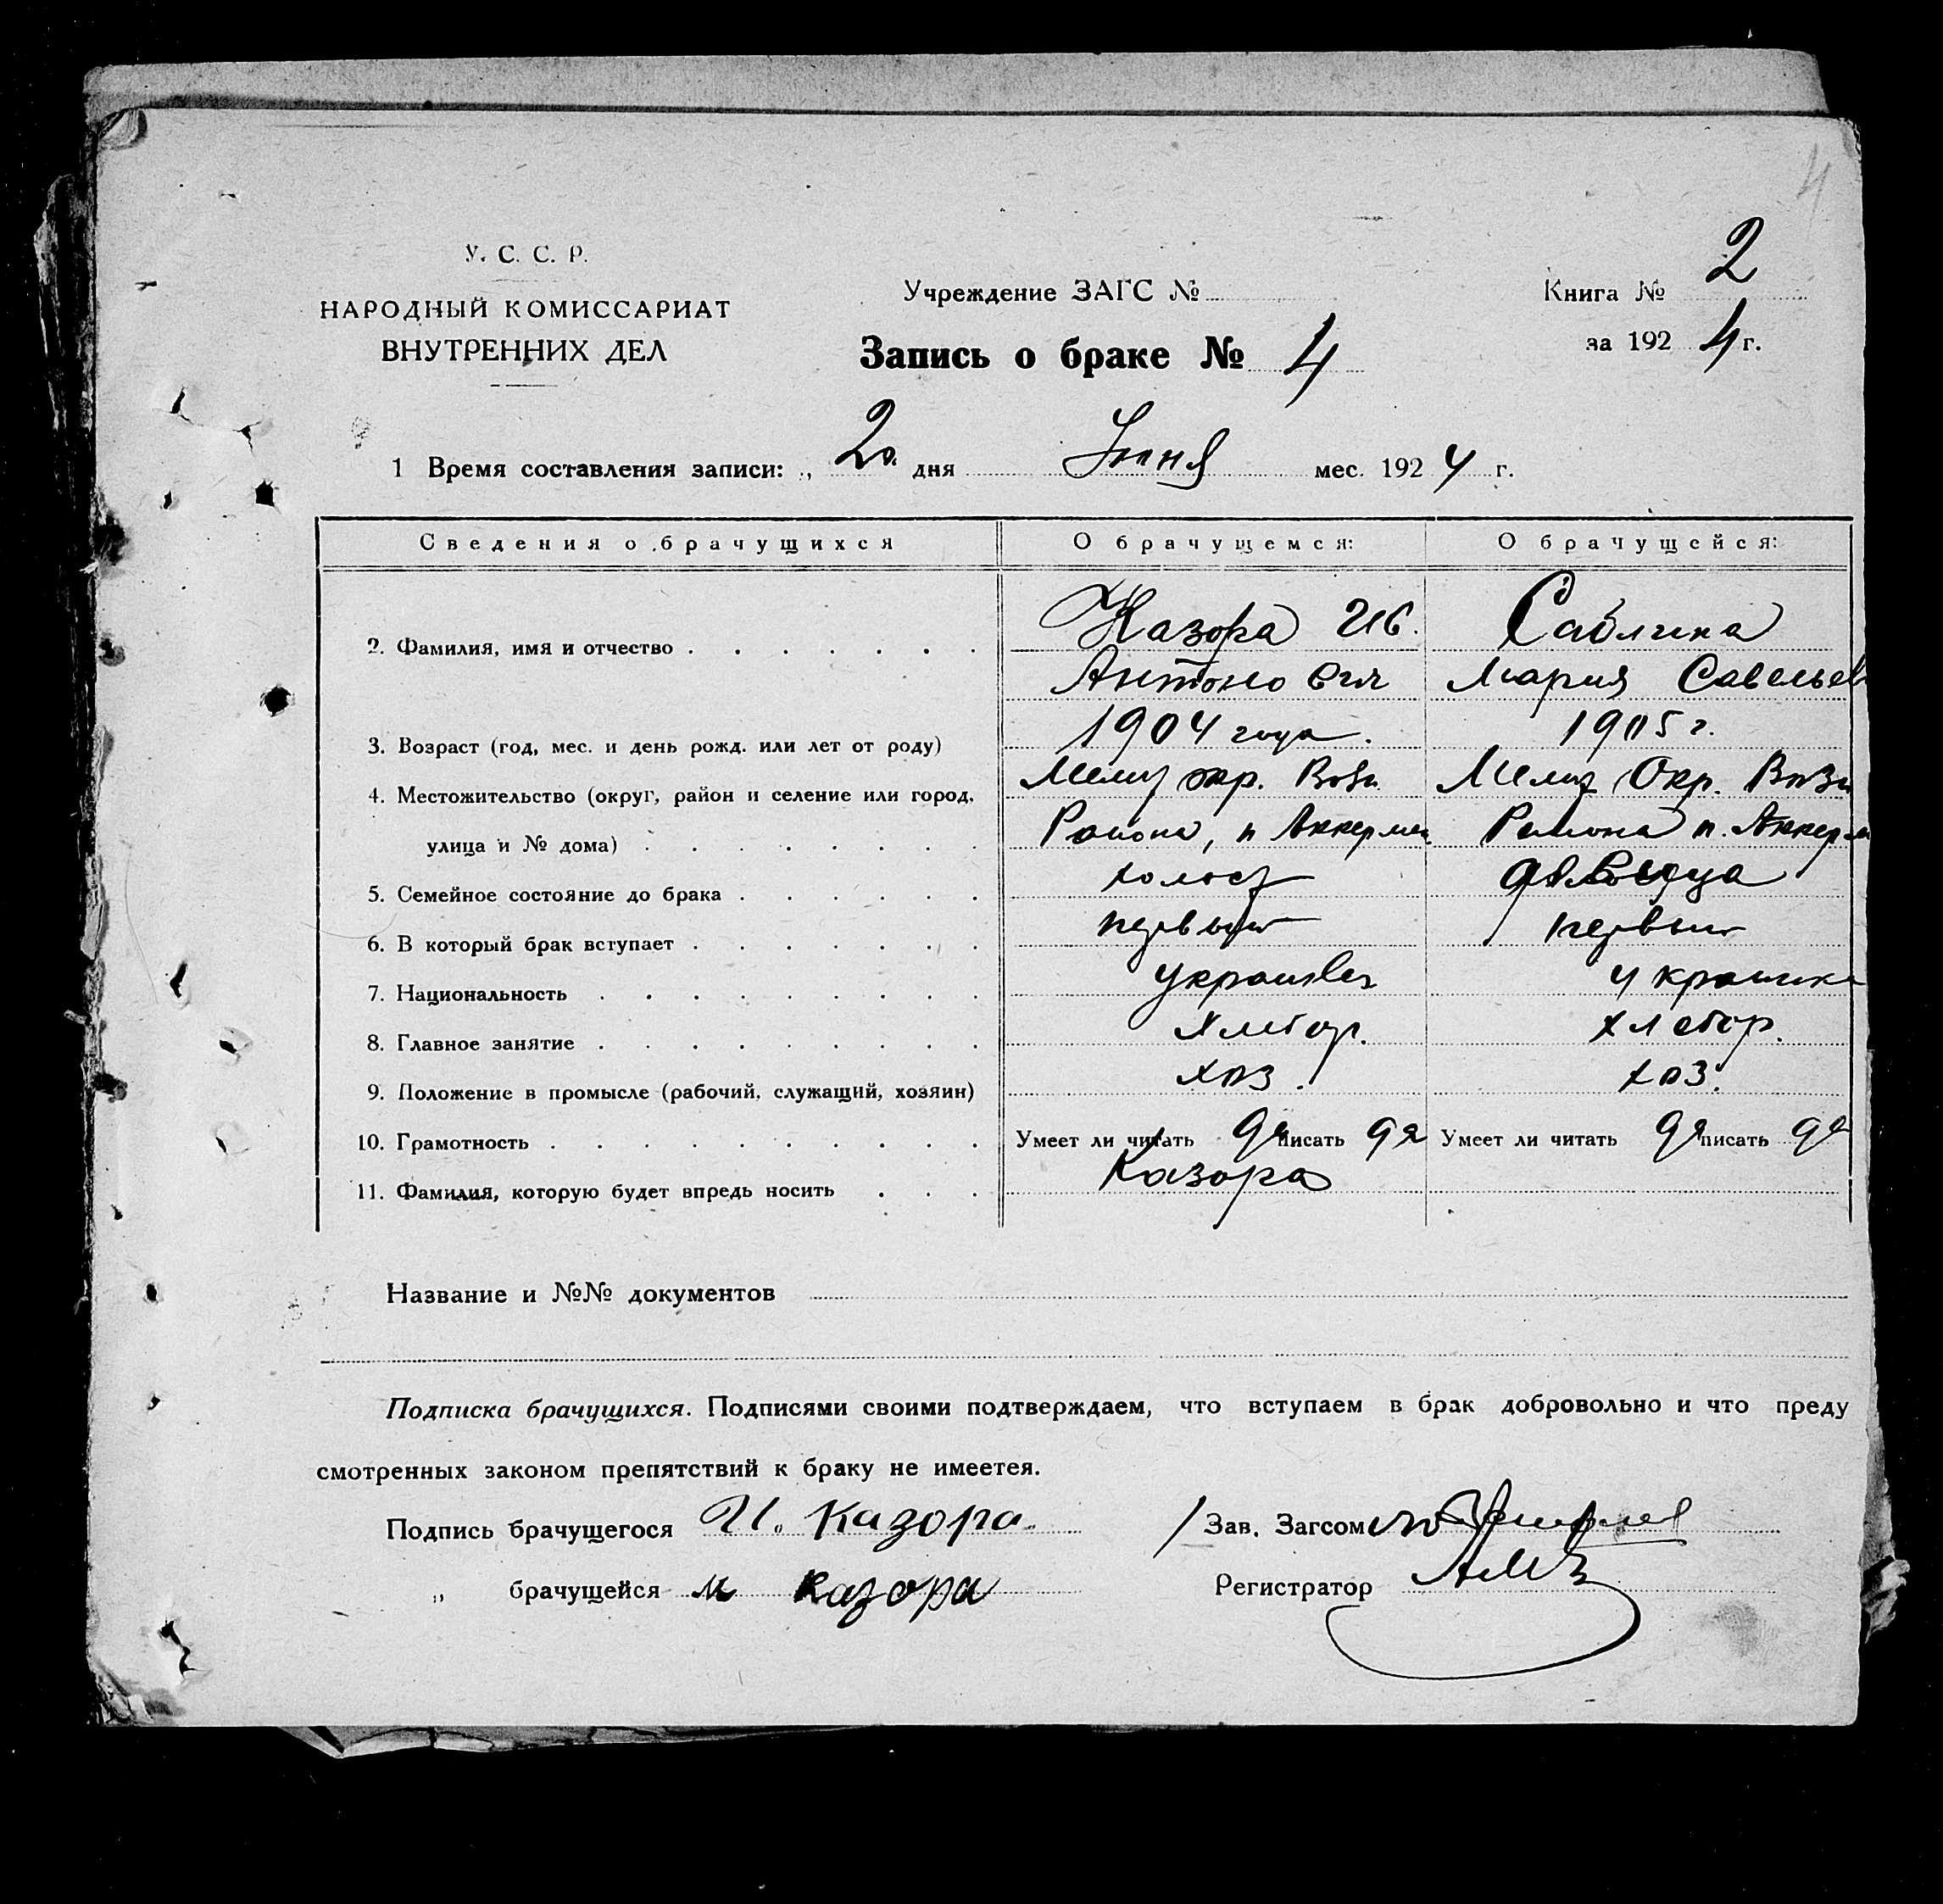 4
У. С. С. Р.
НАРОДНЫЙ КОМИССАРИАТ
ВНУТРЕННИХ ДЕЛ
Учреждение ЗАГС №
Запись о браке № 4
Книга № 2
за 1924 г.
1 Время составления записи: „ 20 дня Июня мес. 1924 г.
Сведения о брачущихся О брачущемся: О брачущейся:
2. Фамилия, имя и отчество Казора Ив. Саблина
Антонович Мария Савельев
3. Возраст (год, мес. и день рожд. или лет от роду) 1904 года. 1905 г.
4. Местожительство (округ, район и селение или город, Мелит окр. Возн Мелит Окр. Возн
улица и № дома) Района, п Аккермен Района п. Аккерм
5. Семейное состояние до брака холост девица
6. В который брак вступает первый первый
7. Национальность украинец украинка
8. Главное занятие хлебор. хлебор.
9. Положение в промысле (рабочий, служащий, хозяин) хоз. хоз.
10. Грамотность Умеет ли читать да писать да Умеет ли читать да писать да
11. Фамилия, которую будет впредь носить Казора
Название и №№ документов
Подписка брачущихся. Подписями своими подтверждаем, что вступаем в брак добровольно и что преду
смотренных законом препятствий к браку не имеетея.
Подпись брачущегося И. Казора Зав. Загсом
„ брачущейся М Казора Регистратор